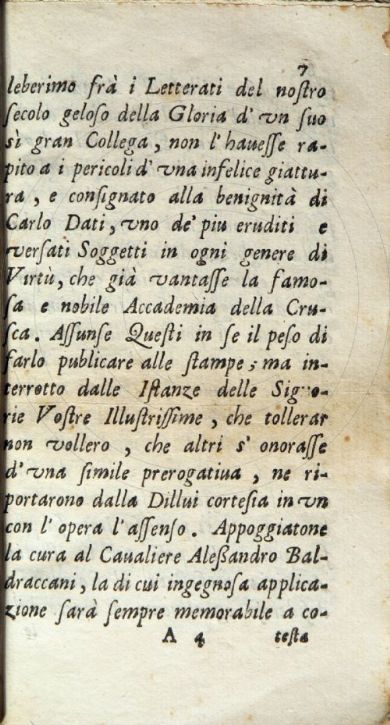 7
leberimo frà i Letterati del nostro
secolo geloso della Gloria d' vn suo
sì gran Collega, non l' hauesse ra-
pito a i pericoli d' vna infelice giattu-
ra, e consignato alla benignità di
Carlo Dati, vno de' piu eruditi e
versati Soggetti in ogni genere di
Virtù, che già vantasse la famo-
sa e nobile Accademia della Cru-
sca. Assunse Questi in se il peso di
farlo publicare alle stampe; ma in-
terrotto dalle Istanze delle Signo-
rie Vostre Illustrissime, che tollerar
non vollero, che altri s' onorasse
d' vna simile prerogatiua, ne ri-
portarono dalla Dillui cortesia in vn
con l' opera l' assenso. Appoggiatone
la cura al Caualiere Aleßandro Bal-
draccani, la di cui ingegnosa applica-
zione sarà sempre memorabile a co-
A 4 testa